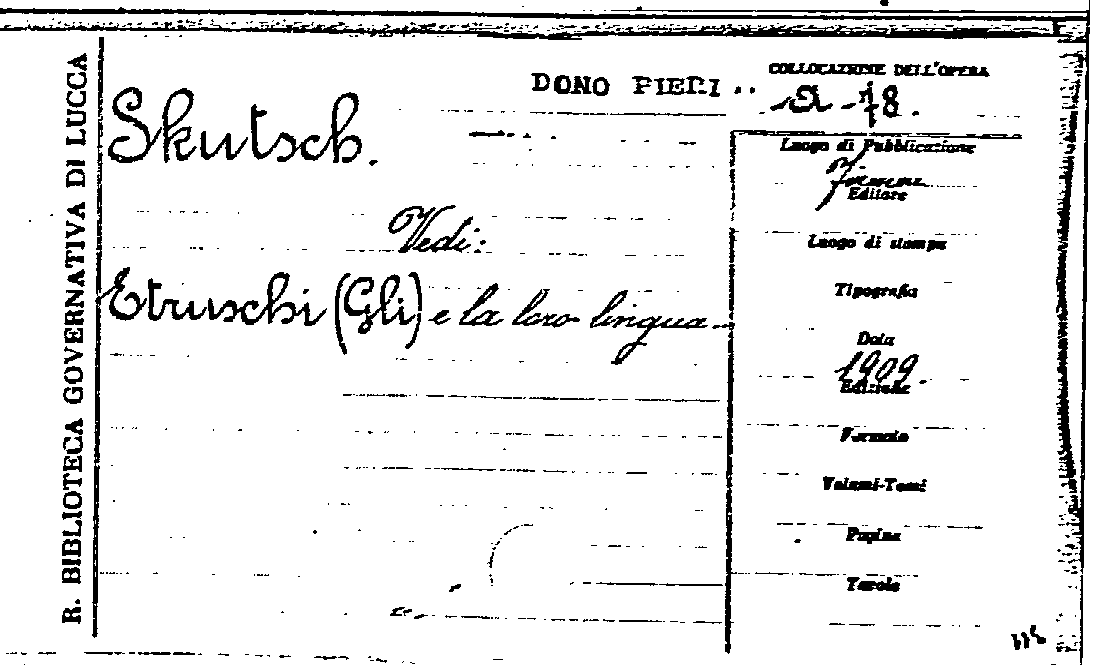 R. BIBLIOTECA GOVERNATIVA DI LUCCA
DONO PIERI
COLLOCAZIONE DELL'OPERA
Skutsch.
Vedi:
Etruschi (Gli) e la loro lingua
Luogo di Pubblicazione
Firenze
Editore
Luogo di stampa
Tipografia
Data
1909.
Edizione
Formato
Volumi-Tomi
Pagine
Tavole